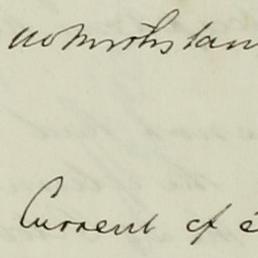 notwithstan
Current of e